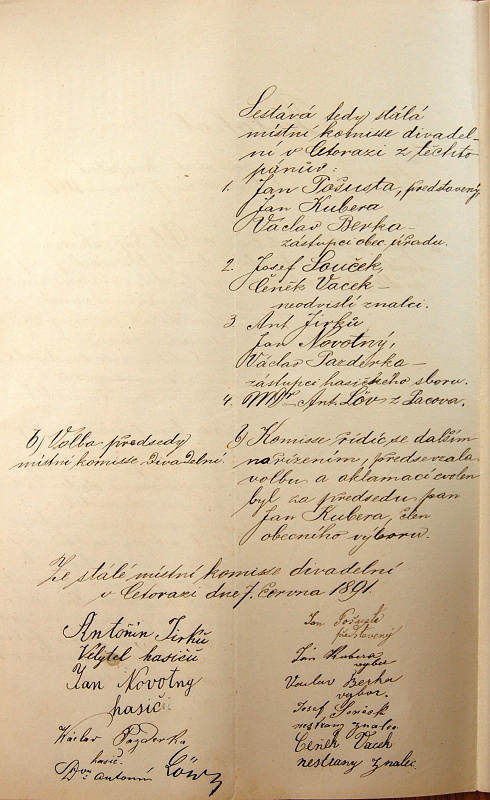 Sestává tedy stálá
místní komisse divadel-
ní v Cetorazi z těchto
pánův:
1. Jan Pošusta, představený,
Jan Kubera
Václav Berka –
zástupci obec. úřadu.
2. Josef Souček,
Čeněk Vacek –
neodvislí znalci.
3. Ant. Jirků
Jan Novotný,
Václav Pazderka –
zástupci hasičského sboru.
4. MDr. Ant. Löv z Pacova.
b) Volba předsedy
místní komisse divadelní.
b) Komisse řídíc se dalším
nařízením, předsevzala
volbu a aklamací zvolen
byl za předsedu pan
Jan Kubera, člen
obecního výboru.
Ze stálé místní komisse divadelní
v Cetorazi dne 7. června 1891.
Antonín Jirků
Velitel hasičů
Jan Novotny
hasič
Václav Pazderka
hasič.
Dr. Antonín Löwy
Jan Pošusta
představený
Jan Kubera
vybor
Vaclav Berka
vybor.
Josef Souček
nestrany znalec
Čeněk Vacek
nestrany znalec.